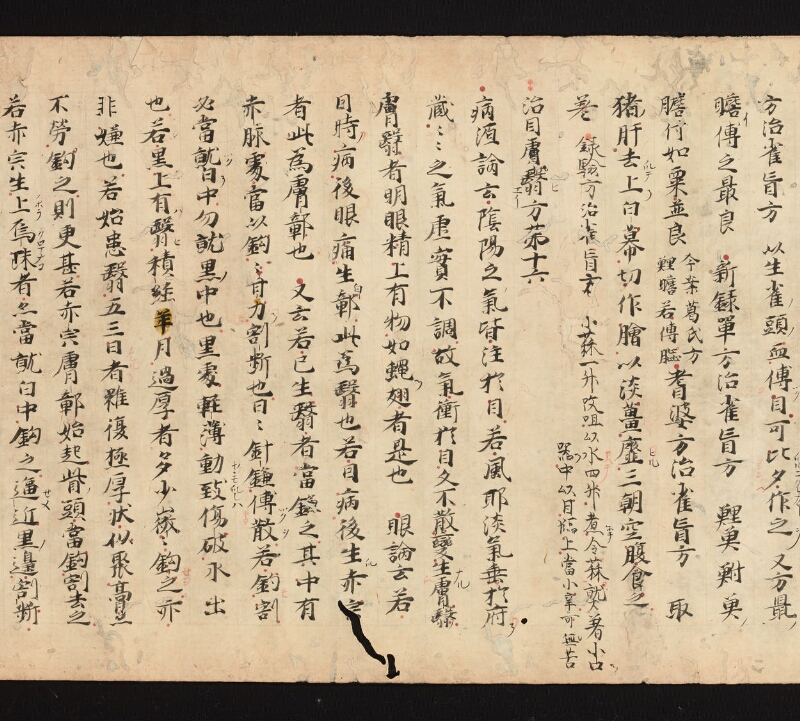 方治雀盲方 以生雀頭血傅目可比夕作之 又方最
膽傅之最良 新録單方治雀盲方 鯉膽
膽行如粟並良 今案葛氏方鯉膽若傅 耆婆方治雀盲方 取
猪肝去上白幕切作膾以淡薑 三朝空腹食之
録驗方治雀盲方 小蘇一升㕮咀以水四升煮令蘇熟著小口
器中以目臨上當小 即無苦
治目膚翳方第十六
病源論云陰陽之氣皆注於目若風耶淡氣乗於府
蔵〻之氣虚實不調故氣衝於目久不散變生膚翳
膚翳者明眼精上有物如蝿翅者是也 眼論云若
目時病後眼痛生白鄣此為翳也若目病後生赤宍
者此為膚鄣也 又云若已生翳者當鎌之其中有
赤脉處當以鈎〻甘刀割断也日〻針鎌傅散若鈎割
必當就白中勿就黒中也黒處軽薄動致傷破水出
也若黒上有翳積経年月過厚者夕少 〻鈎之亦
非嫌也若始患翳五三日者雖復極厚状似聚 
不勞鈎之則更甚若赤宍膚鄣始起 頭當鈎割去之
若赤宍生上為珠者亦當就白中鈎之逼近黒邊割断